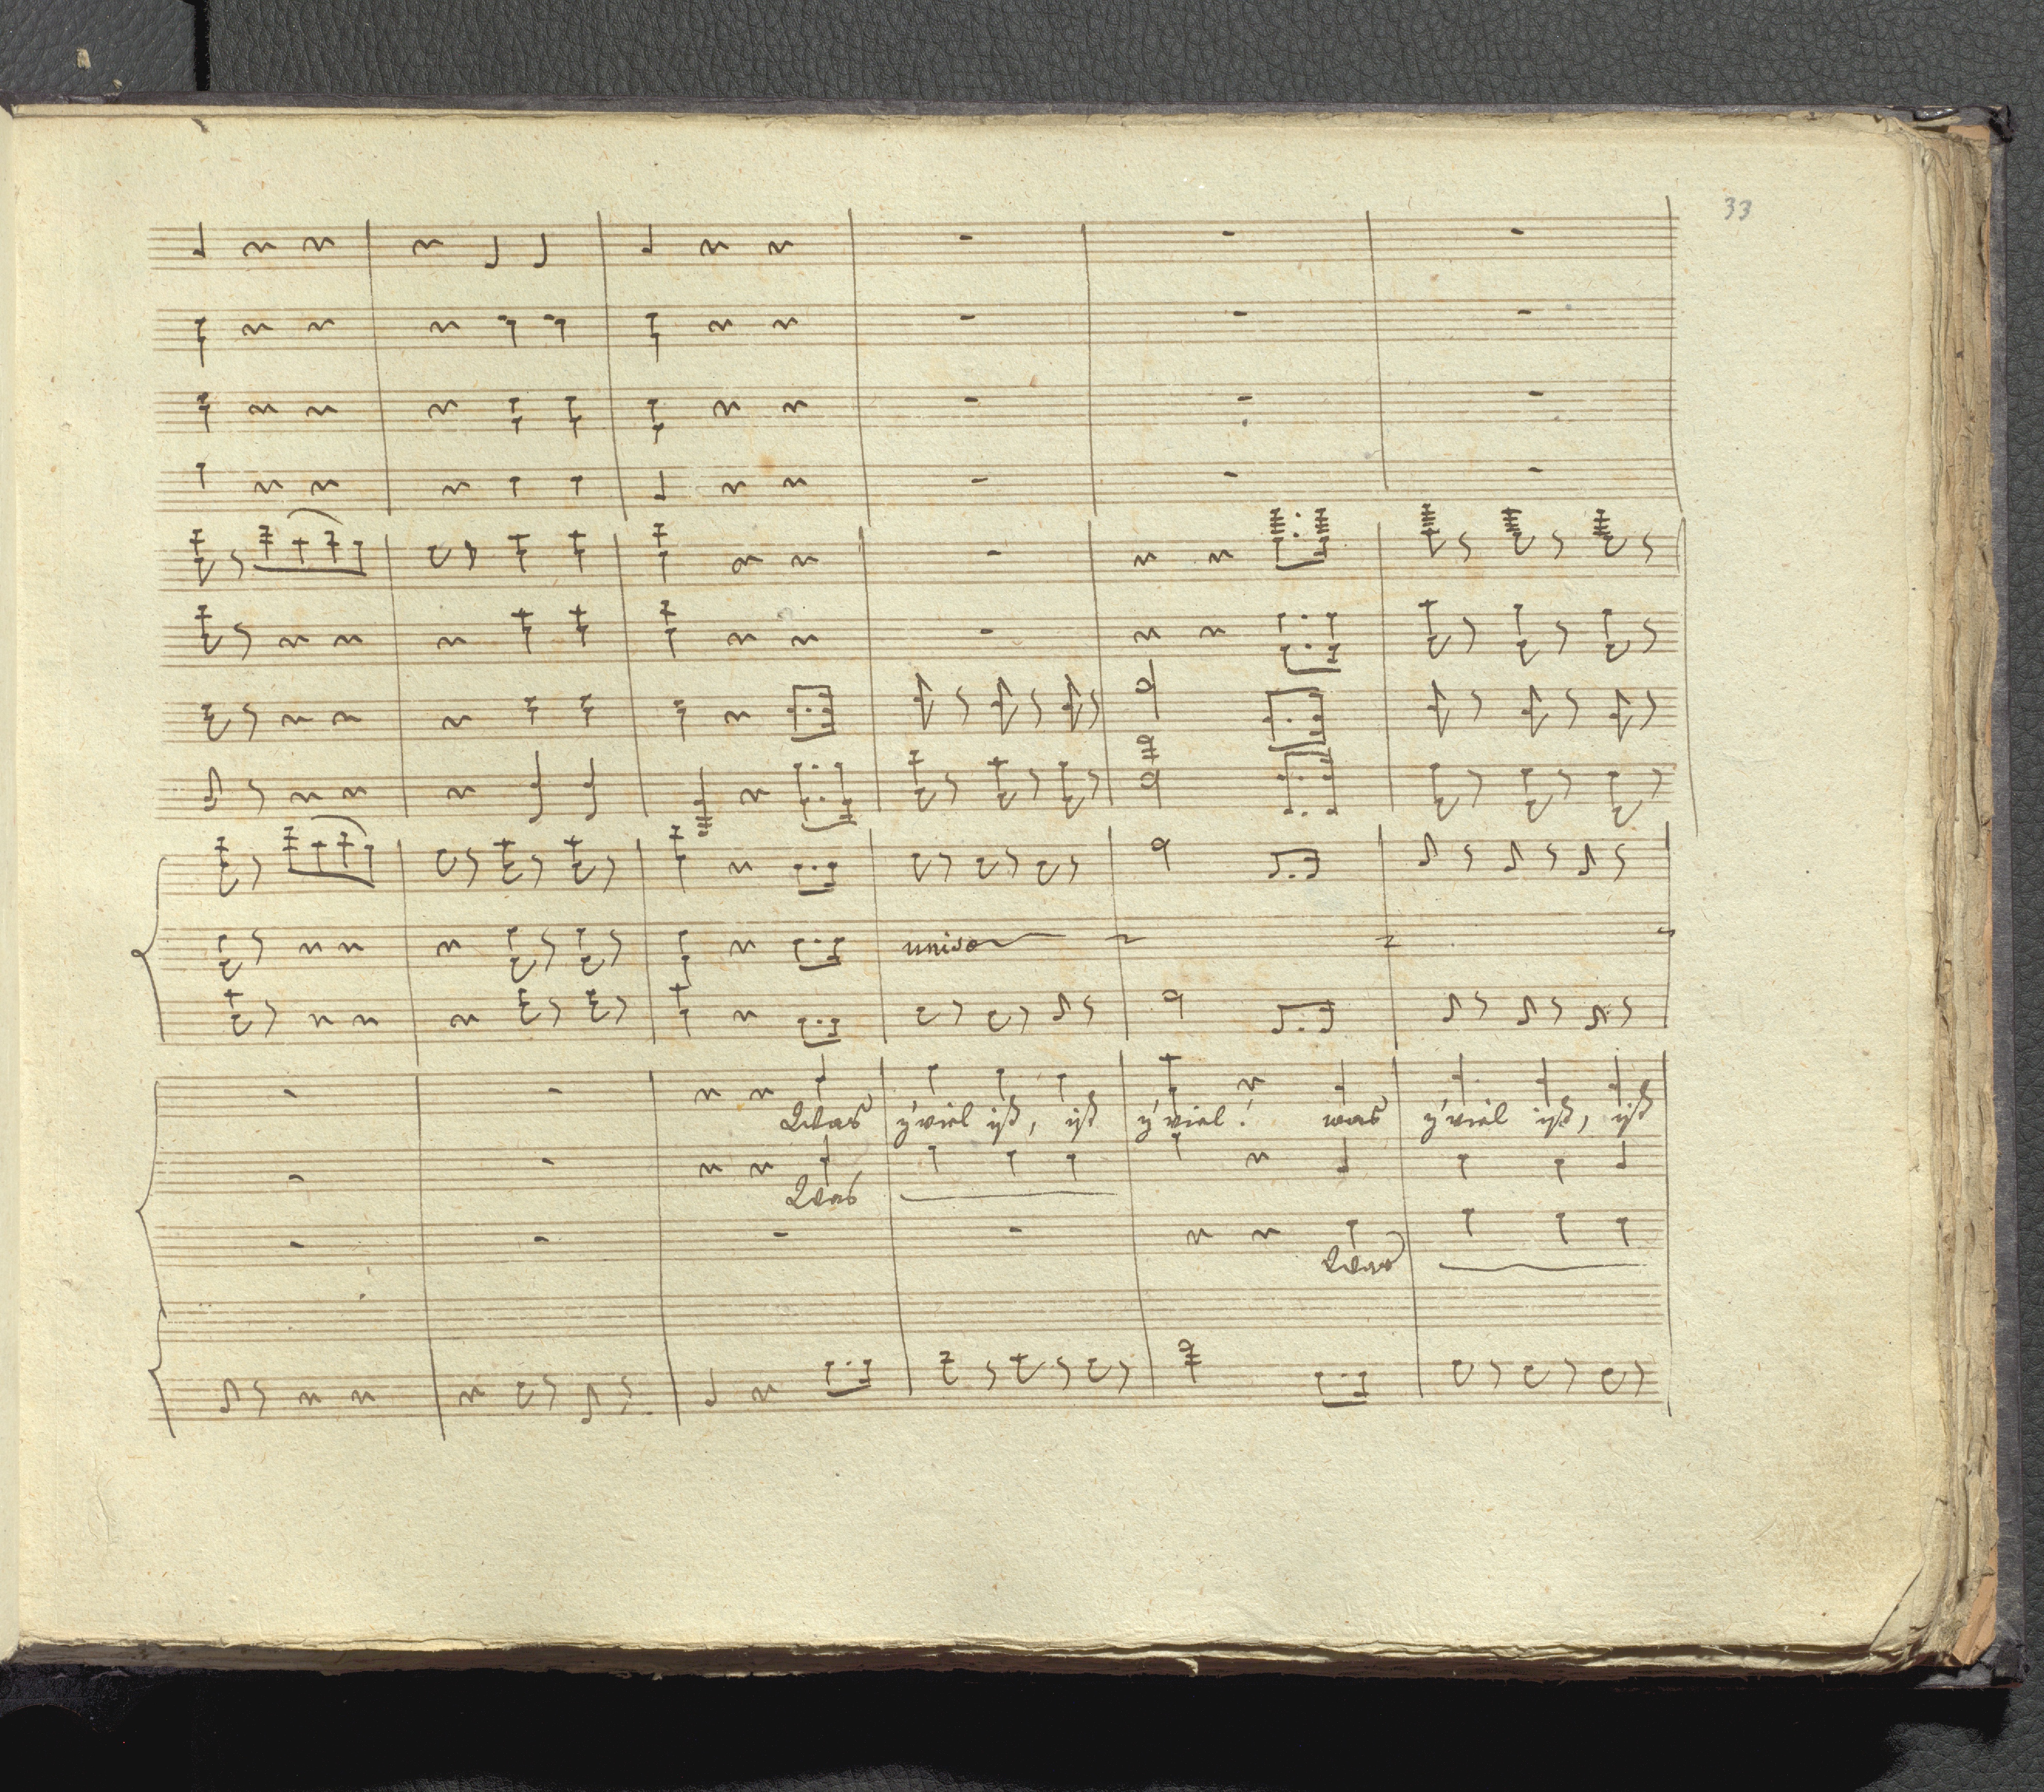 33
uniso
Was z'viel iß, iß z'viel! was z'viel iß, iß
Was
Was